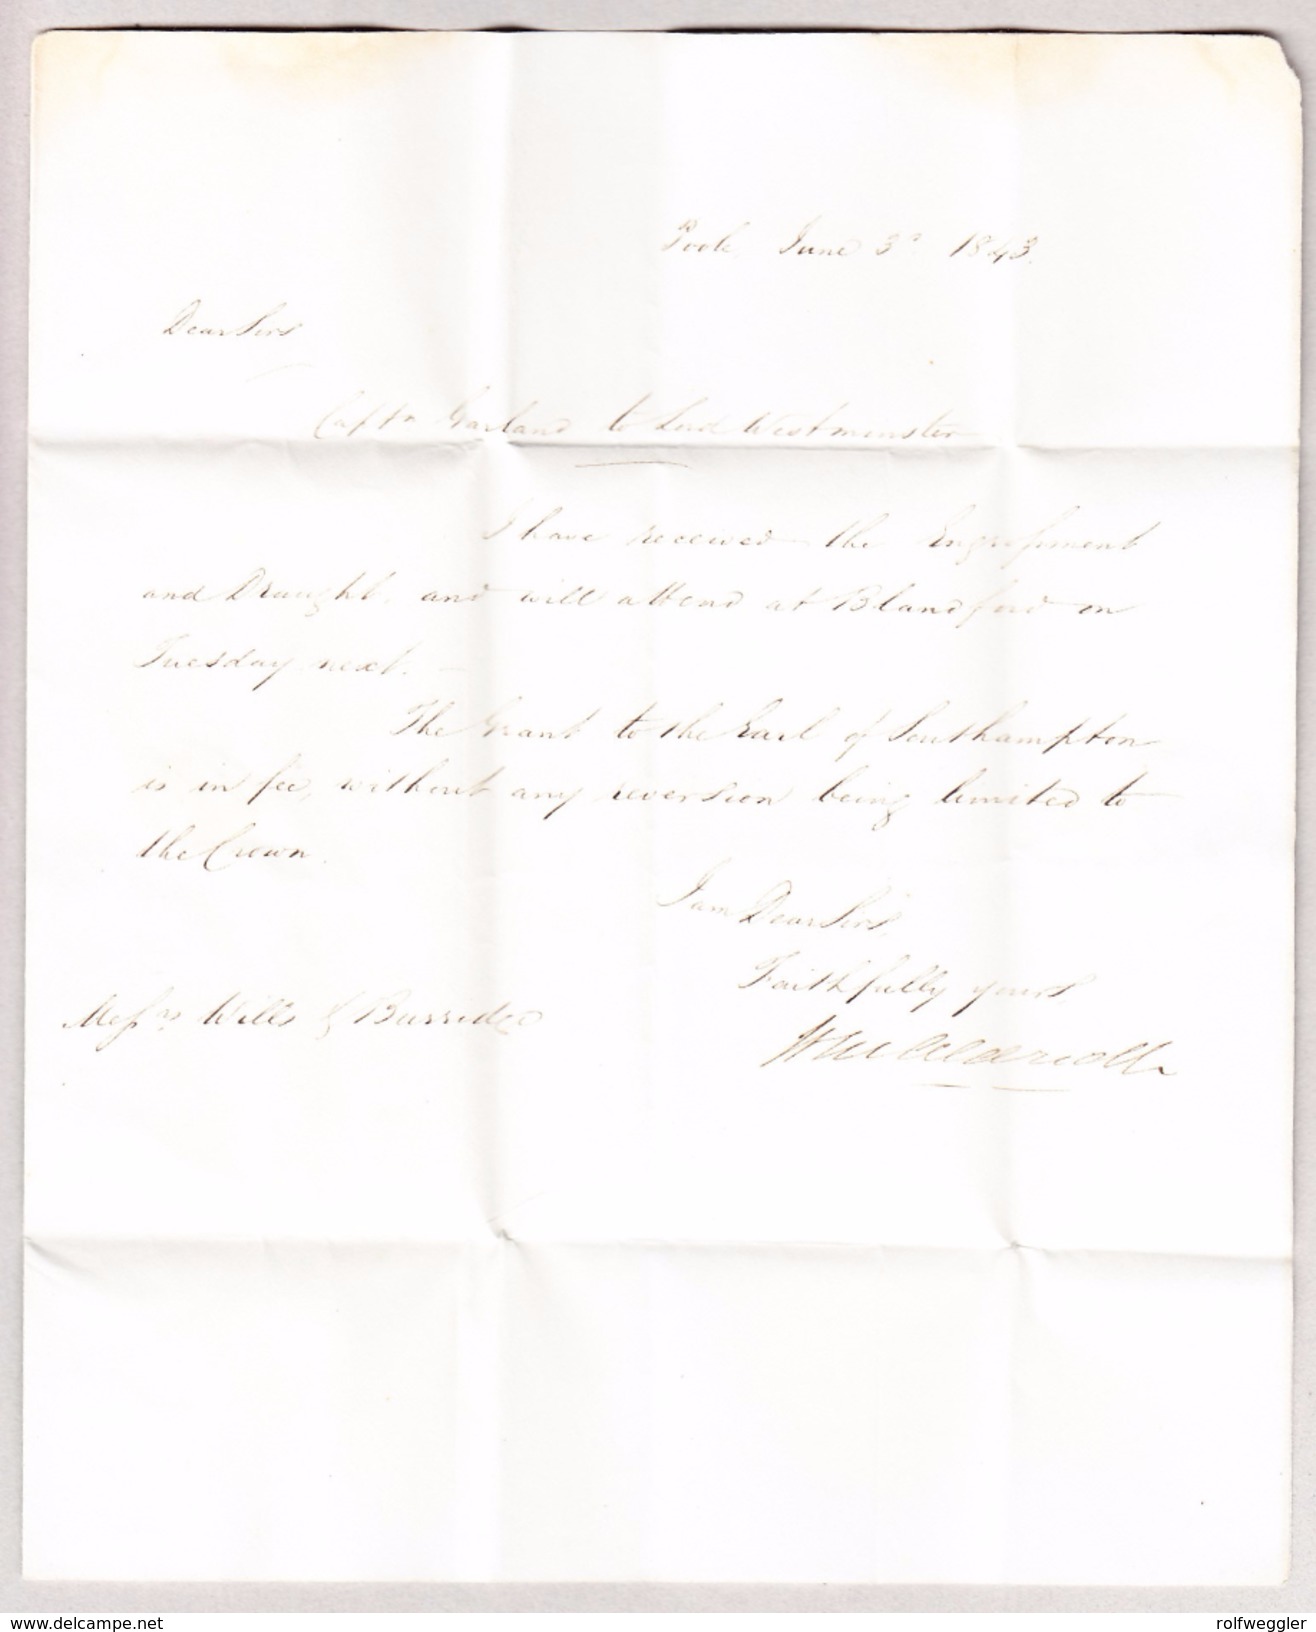 Poole, June 3d 1843.
Dear Sirs
Captn Garland to Lord Westminster
I have received the Engrossment
and Draught, and will attend at Blandford on
Tuesday next. —
The Grant to the Earl of Southampton
is in fee, without any reversion being limited to
the Crown.
I am Dear Sirs,
Faithfully yours,
Messrs Wills & Burridge
www.delcampe.net
rolfweggler